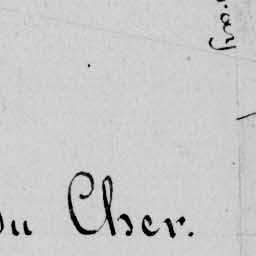 du Cher.